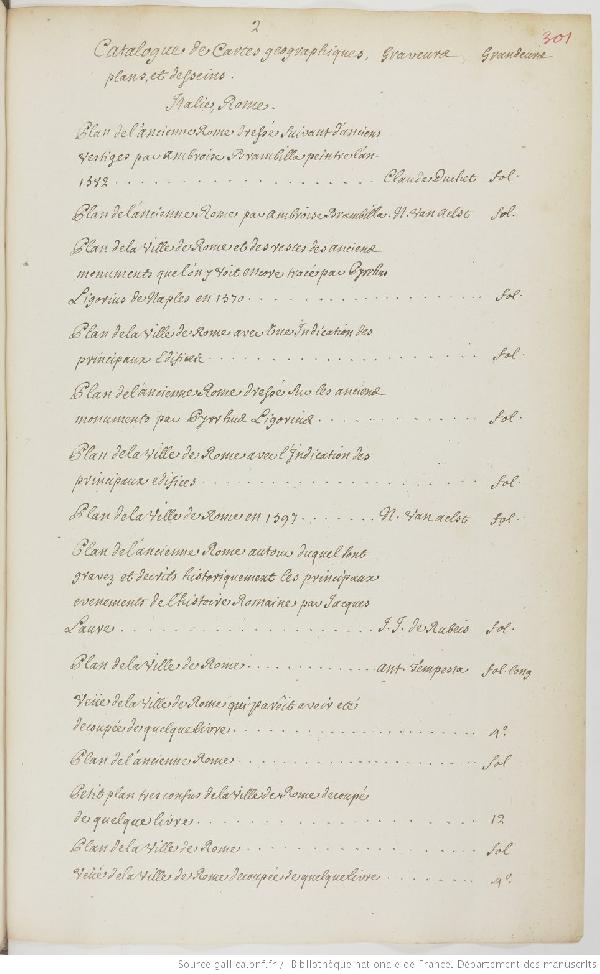 2
301
Catalogue de Cartes geographiques, Graveurs Grandeurs
plans, et desseins.
Italie, Rome.
Plan de l'ancienne Rome dressé suivant d'anciens
vestiges par Ambroise Brambilla peintre l'an
1582 . . . . . . . . . . . . . . . . Claude Duchet fol.
Plan de l'ancienne Rome par Ambroise Brambilla. N. Van aelst fol.
Plan de la Ville de Rome et des restes des anciens
monuments que l'on y voit encore tracé par Pyrrhus
Ligorius de Naples en 1570 . . . . . . . . . . . . . . fol.
Plan de la Ville de Rome avec une Indication des
principaux Edifices . . . . . . . . . . . . . . . . fol.
Plan de l'ancienne Rome dressé sur les anciens
monuments par Pyrrhus Ligorius . . . . . . . . . . fol.
Plan de la Ville de Rome avec l'Indication des
principaux edifices . . . . . . . . . . . . . . . . fol.
Plan de la Ville de Rome en 1597 . . . . . . . N. Van aelst fol.
Plan de l'ancienne Rome autour duquel sont
gravez et decrits historiquement les principaux
evenements de l'histoire Romaine par Jacques
Laure . . . . . . . . . . . . . . . . J. J. de Rubeis fol.
Plan de la Ville de Rome . . . . . . . . . . . Ant. Tempesta fol. long
Veüe de la Ville de Rome qui paroît avoir eté
decoupée de quelque livre . . . . . . . . . . . . . . 4.º
Plan de l'ancienne Rome . . . . . . . . . . . . . . fol
Petit plan tres confus de la Ville de Rome decoupé
de quelque livre . . . . . . . . . . . . . . . . 12
Plan de la Ville de Rome . . . . . . . . . . . . . . fol
Veüe de la Ville de Rome decoupée de quelque livre . . . . . . . 4.º
Source gallica.bnf.fr / Bibliothèque nationale de France. Département des manuscrits